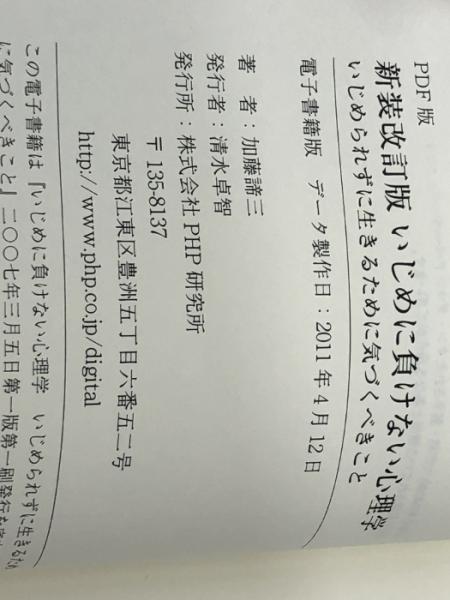 PDF版
新装改訂版 いじめに負けない心理学
いじめられずに生きるために気づくべきこと
電子書籍版 データ製作日：2011年4月12日
著 者：加藤諦三
発行者：清水卓智
発行所：株式会社PHP研究所
〒135-8137
東京都江東区豊洲五丁目六番五二号
http://www.php.co.jp/digital
この電子書籍は『いじめに負けない心理学 いじめられずに生きるため
に気づくべきこと』二〇〇七年三月五日第一版第一刷発行を